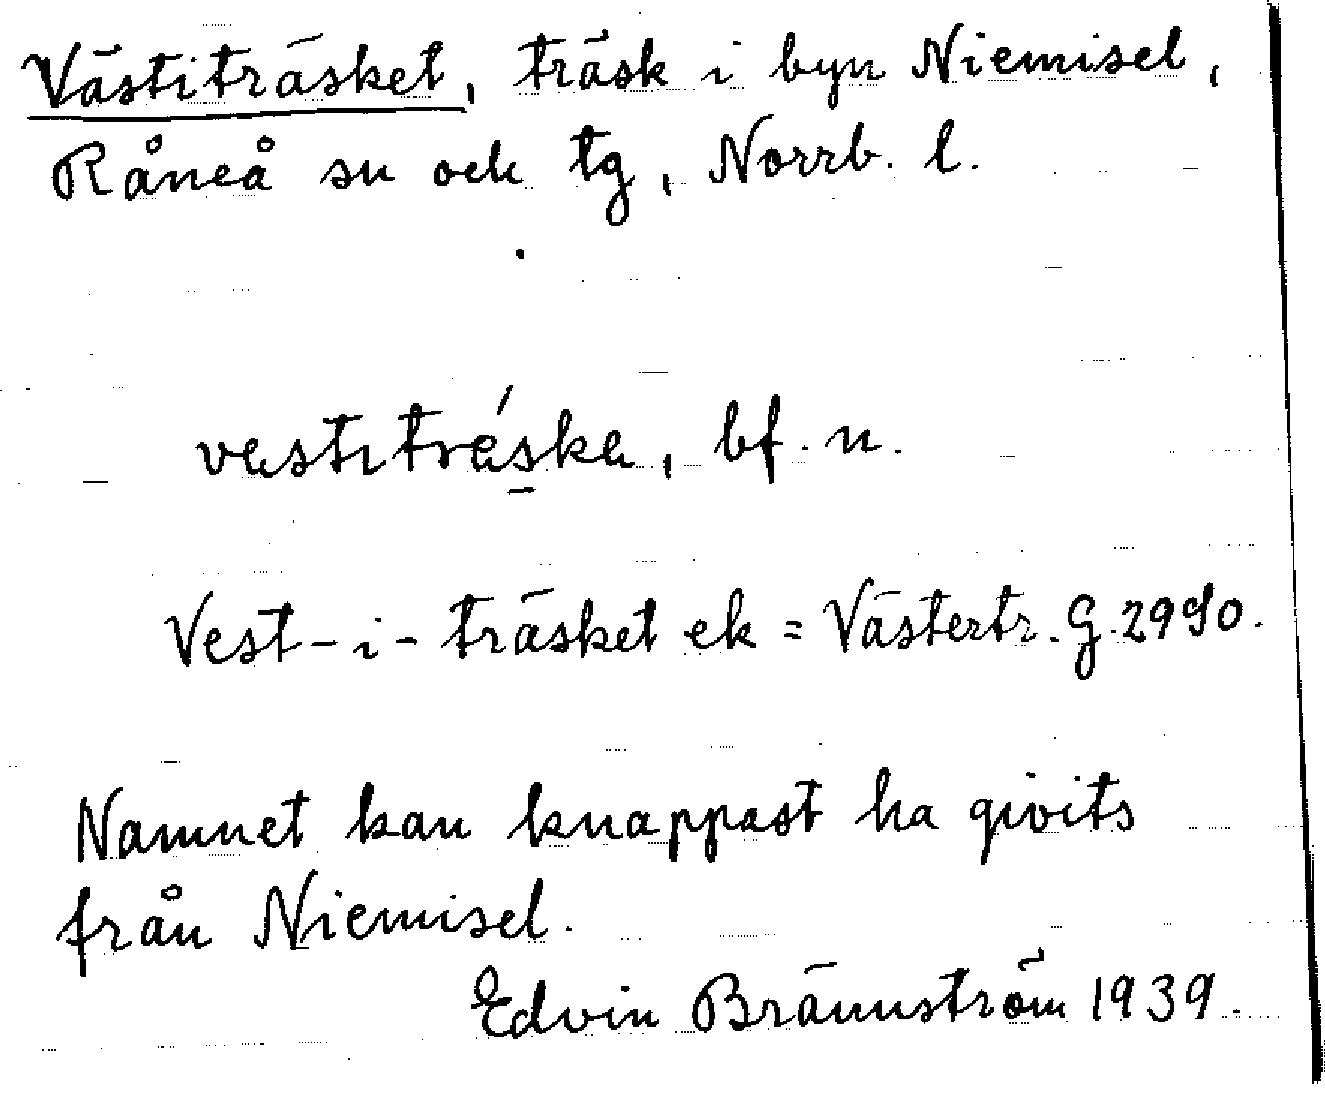 Västiträsket, träsk i byn Niemisel,
Råneå sn och tg, Norrb. l.
västiträ́ska, bf. n.
Vest-i-träsket ek = Västertr. G. 2990.
Namnet kan knappast ha givits
från Niemisel.
Edvin Brännström 1939.